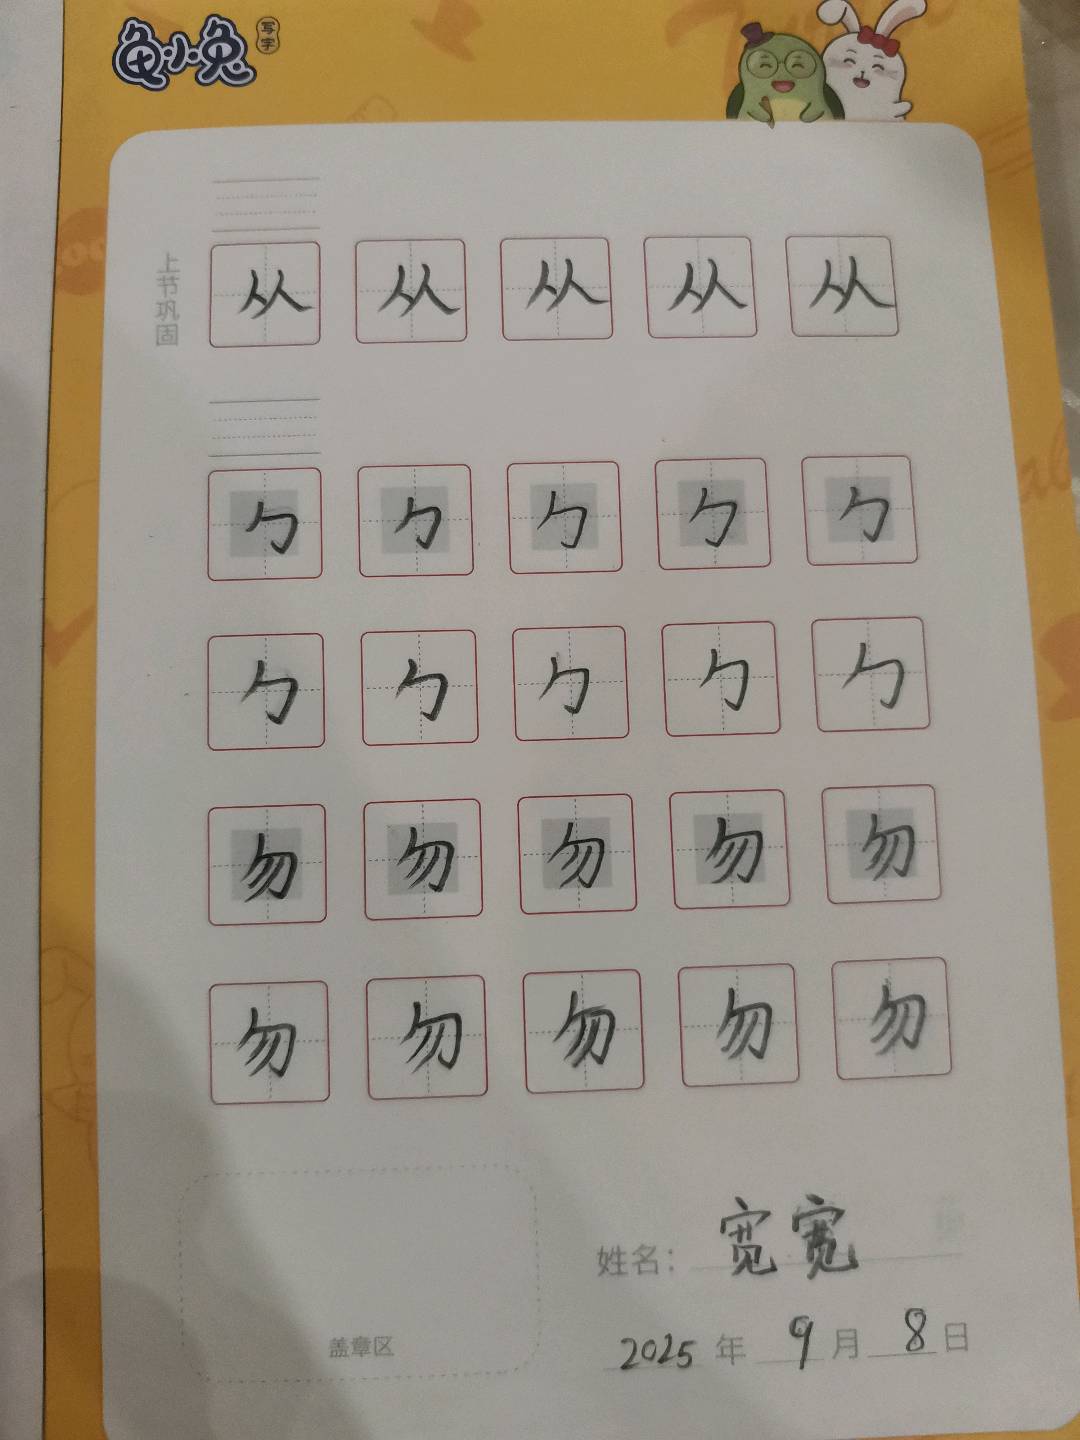 龟小兔 写字
上节巩固
从 从 从 从 从
勹 勹 勹 勹 勹
勹 勹 勹 勹 勹
勿 勿 勿 勿 勿
勿 勿 勿 勿 勿
姓名：宽宽
盖章区
2025年9月8日